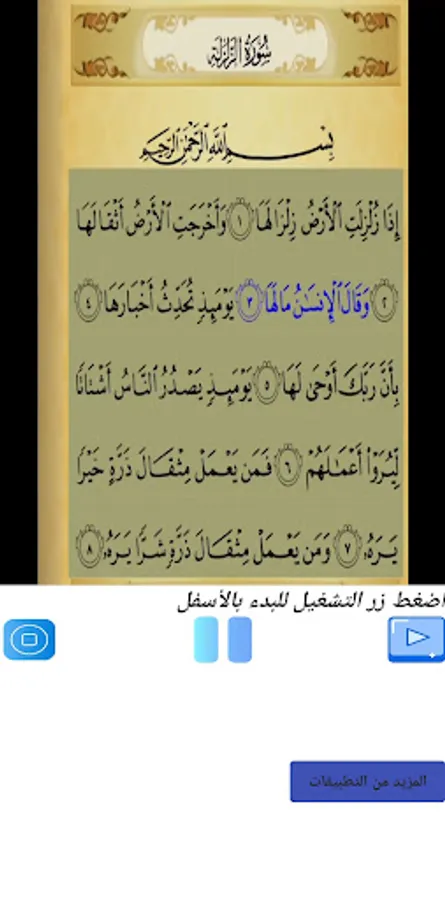 سُورَةُ الزَّلْزَلَةِ
بِسْمِ ٱللَّهِ ٱلرَّحْمَٰنِ ٱلرَّحِيمِ
إِذَا زُلْزِلَتِ ٱلْأَرْضُ زِلْزَالَهَا ١ وَأَخْرَجَتِ ٱلْأَرْضُ أَثْقَالَهَا
٢ وَقَالَ ٱلْإِنسَٰنُ مَا لَهَا ٣ يَوْمَئِذٍ تُحَدِّثُ أَخْبَارَهَا ٤
بِأَنَّ رَبَّكَ أَوْحَىٰ لَهَا ٥ يَوْمَئِذٍ يَصْدُرُ ٱلنَّاسُ أَشْتَاتًا
لِّيُرَوْا۟ أَعْمَٰلَهُمْ ٦ فَمَن يَعْمَلْ مِثْقَالَ ذَرَّةٍ خَيْرًا
يَرَهُۥ ٧ وَمَن يَعْمَلْ مِثْقَالَ ذَرَّةٍ شَرًّا يَرَهُۥ ٨
اضغط زر التشغيل للبدء بالأسفل
المزيد من التطبيقات